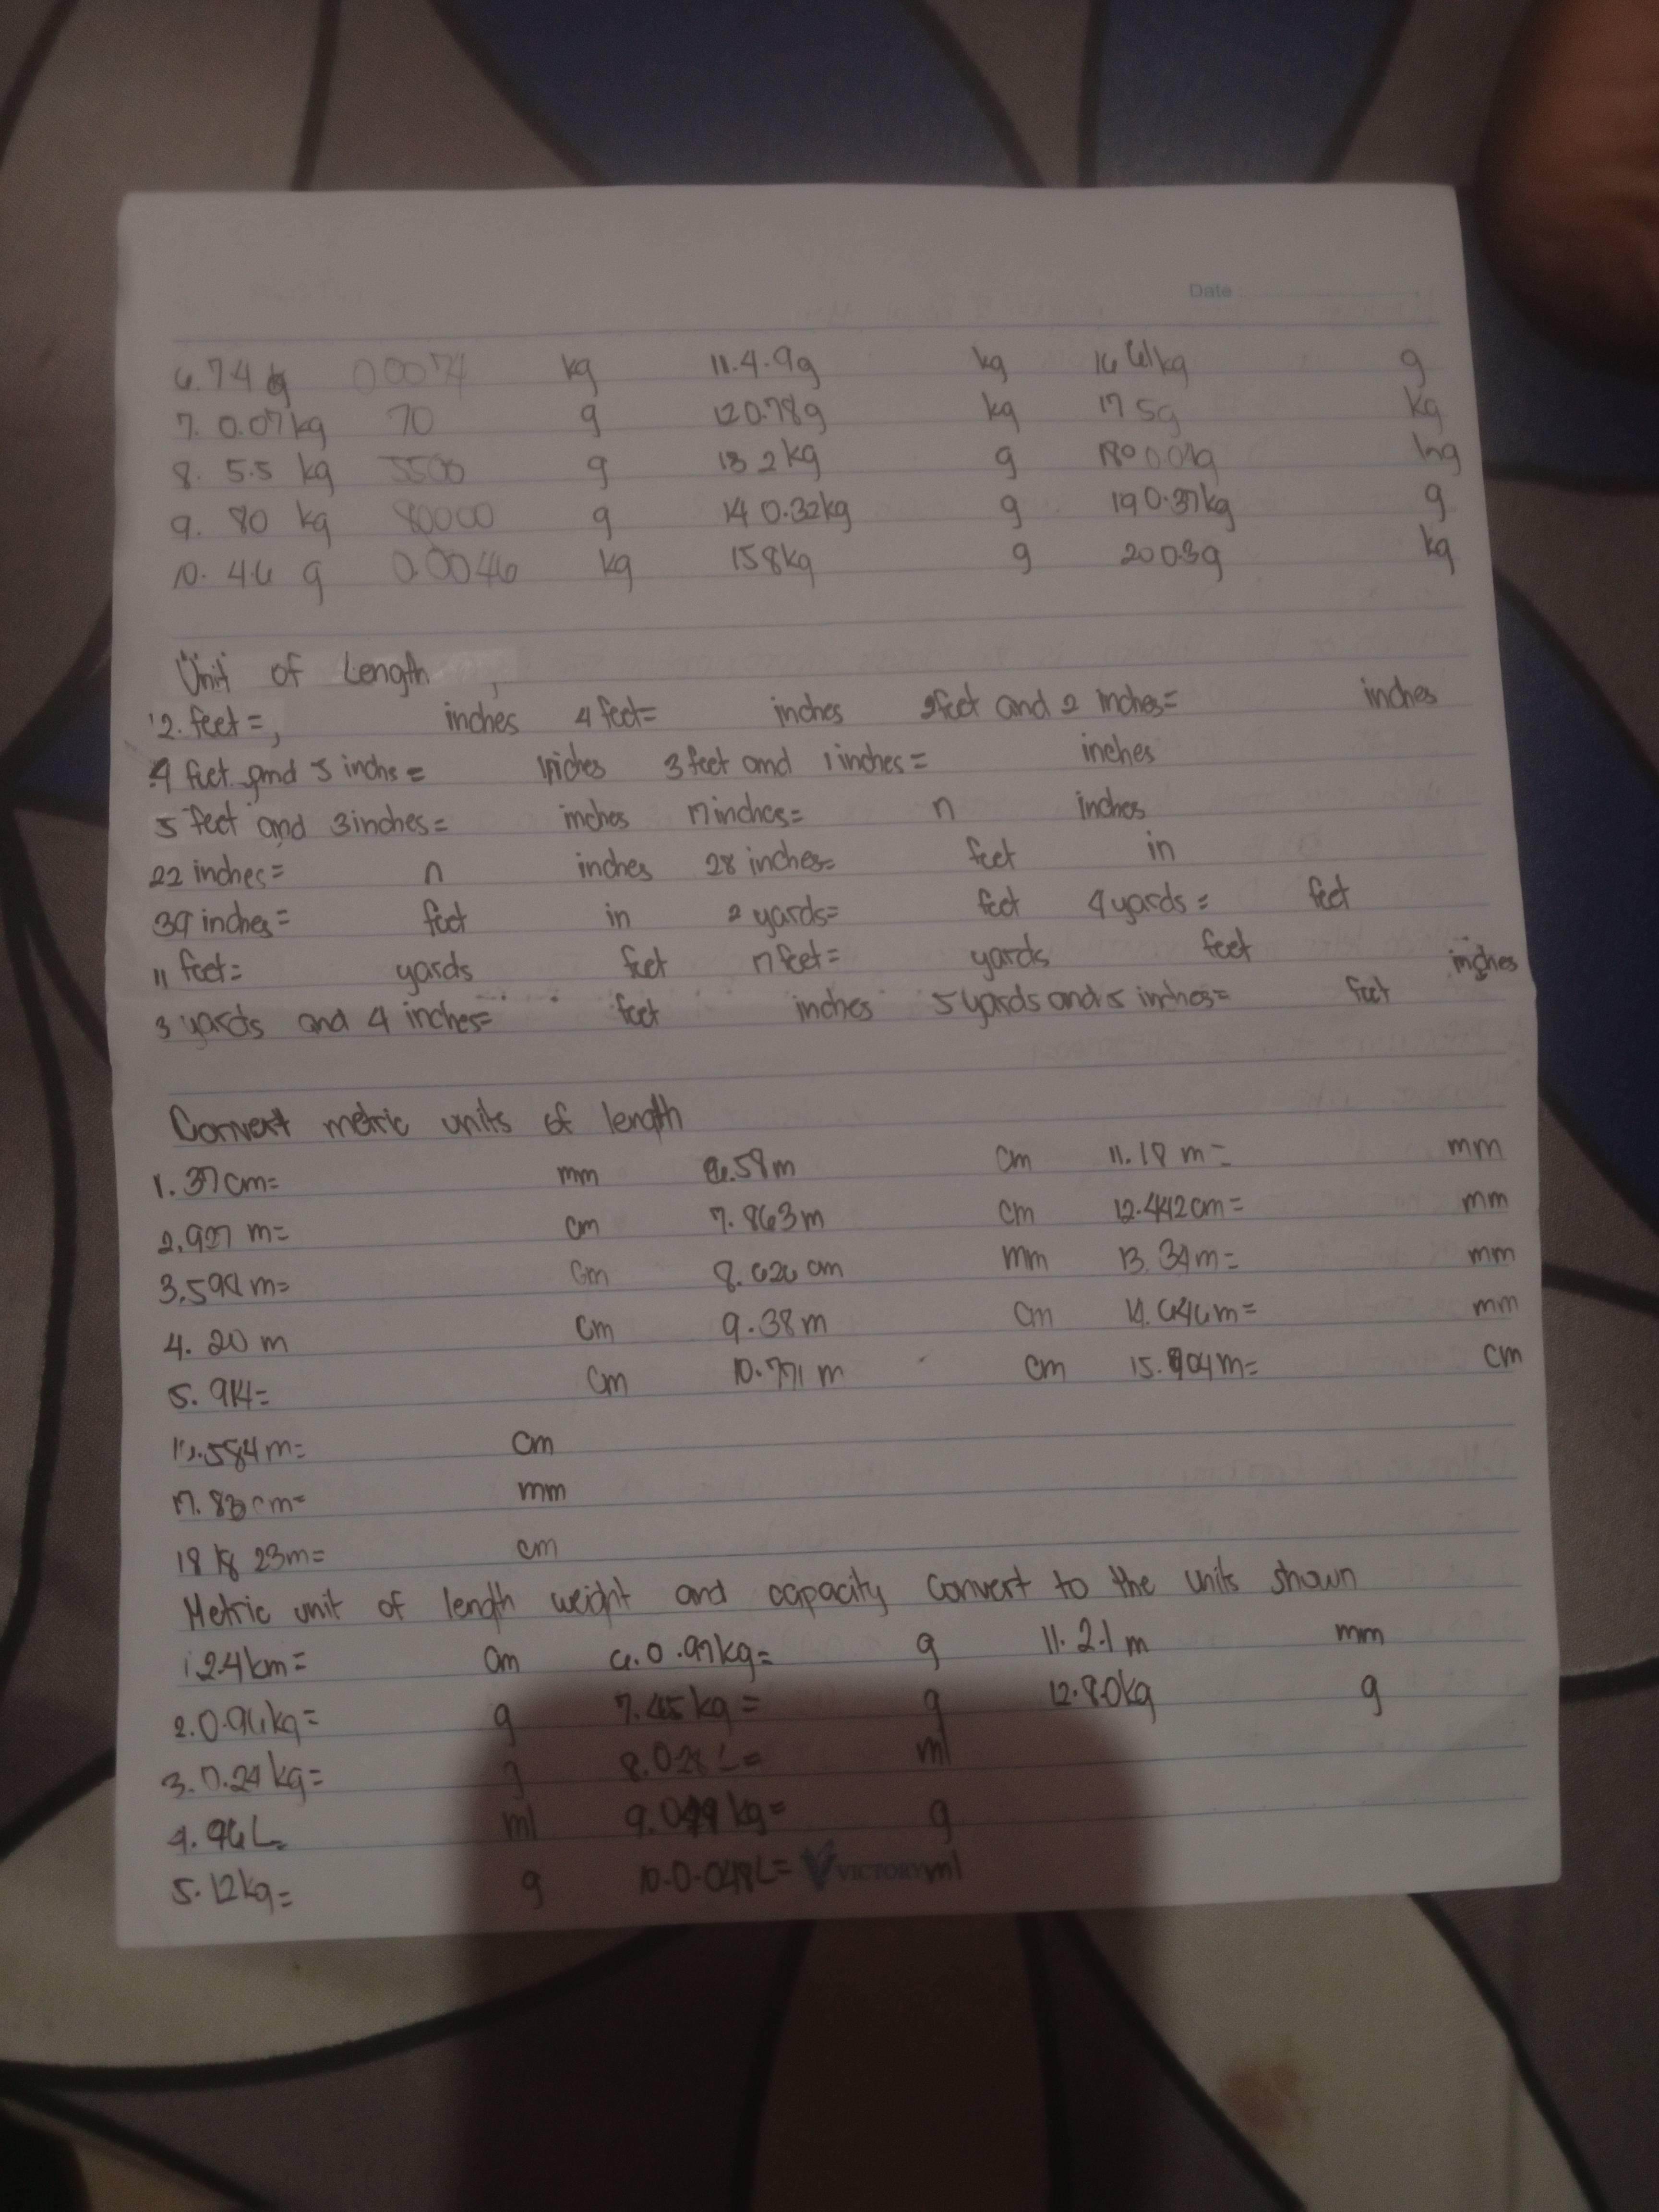 Date
6. 74 g 0.0074 kg 11. 4.9g kg 16 61kg g
7. 0.07kg 70 g 12 0.78g kg 17 5g kg
8. 5.5 kg 5500 g 13 2kg g 18 0.04g
9. 80 kg 80000 g 14 0.32kg g 19 0.37kg g
10. 4.6 g 0.0046 kg 15 8kg g 20 0.3g kg
Unit of Length
2. feet = inches 4 feet= inches 2feet and 2 inches= inches
4 feet and 5 inchs = inches 3 feet and 1 inches = inches
5 feet and 3 inches= inches 17 inches= n inches
22 inches= n inches 28 inches= feet in
39 inches= feet in 2 yards= feet 4 yards = feet
11 feet= yards feet 17 feet= yards feet
3 yards and 4 inches= feet inches 5 yards and 5 inches= feet inches
Convert metric units of length
1. 37 cm= mm 6. 58 m cm 11. 18 m= mm
2. 927 m= cm 7. 863 m cm 12. 442 cm= mm
3. m= cm 8. 626 cm mm 13. 34 m= mm
4. 20 m cm 9. 38 m cm 14. 646 m= mm
5. 914= cm 10. 771 m cm 15. 904 m= cm
584 m= cm
17. 83 cm= mm
18 23m= cm
Metric unit of length weight and capacity Convert to the units shown
1. 2.4 km= cm 6. 0.97kg= g 11. 2.1 m mm
2. 0.96kg= g 7. 65 kg = g 12. 8.0kg g
3. 0.24 kg= g 8. 0.28 L= ml
4. 96 L= ml 9. kg= g
5. 12kg= g 10. 0.048L= VICTORY ml